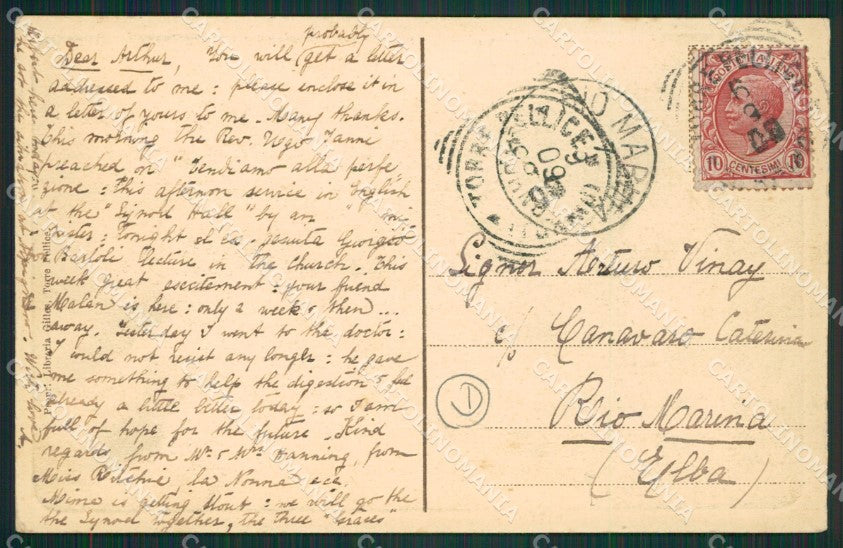 probably
Dear Arthur, You will get a letter
addressed to me: please enclose it in
a letter of yours to me. Many thanks.
This morning the Rev. Ugo Janni
preached on "Tendiamo alla perfe
zione: this afternoon service in English
at the "Synod Hall" by an
ister: tonight el ex. gesuita Giorgio
Bartoli lecture in the church. This
week great excitement: your friend
Malan is here: only a week & then ....
away. Yesterday I went to the doctor:
I could not resist any longer: he gave
me something to help the digestion & feel
already a little better today: so I am
full of hope for the future. Kind
regards from Mr & Mrs Manning, from
Miss Ritchie la Nonna ecc.
Mima is getting stout: we will go the
the Synod together, the three "Graces"
With love
Libreria Torre Pellice
TORRE PELLICE
RIO MARINA
10 CENTESIMI 10
Signor Arturo Vinay
c/o Canavaro Caterina
Rio Marina
(Elba)
CARTOLINOMANIA